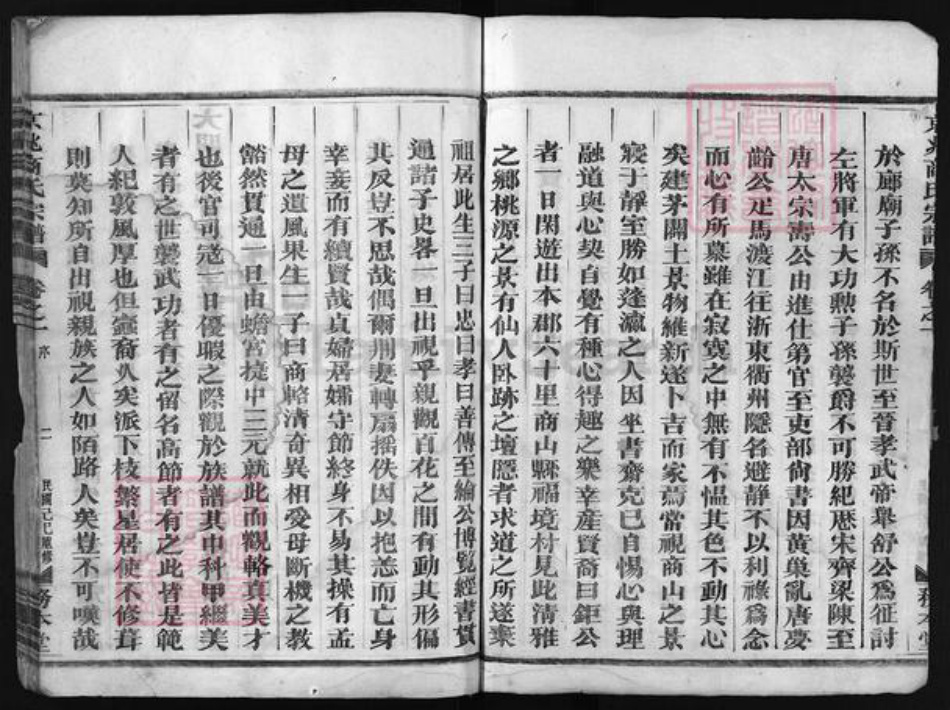 於廊廟子孫不名於斯世至晉孝武帝舉舒公為征討
左將軍有大功勲子孫襲爵不可勝紀歷宋齊梁陳至
唐太宗壽公由進仕第官至吏部尙書因黃巢亂唐夢
齡公疋馬渡江往浙東衢州隱名避靜不以利祿爲念
而心有所慕雖在寂寞之中無有不慍其色不動其心
矣建茅闢土景物維新遂卜吉而家焉常視商山之景
寢于靜室勝如蓬瀛之人因坐書齋克已自惕心與理
融道與心契自覺有種心得趣之樂幸産賢裔曰鉅公
者一日閑遊出本郡六十里商山縣福境村見此清雅
之鄕桃源之景有仙人卧跡之壇隱者求道之所遂棄
祖居此生三子曰忠曰孝曰善傳至綸公博覽經書貫
通諸子史畧一旦出視乎親觀百花之間有動其形偏
其反豈不思哉偶爾荆妻轉扇摇佚因以抱恙而亡身
幸妾而有續賢哉貞婦居孀守節終身不易其操有孟
母之遺風果生一子曰商輅清奇異相受母斷機之教
豁然貫通一旦由蟾宮捷中三元就此而觀輅真美才
也後官司寇一日優暇之際觀於族譜其中科甲繼美
者有之世襲武功者有之留名高節者有之此皆是範
人紀敦風厚也但蠡裔久矣派下枝繁星居使不修葺
則莫知所自出視親族之人如陌路人矣豈不可嘆哉
京兆商氏宗譜
卷之一
序
二
民國己巳重修
務本堂